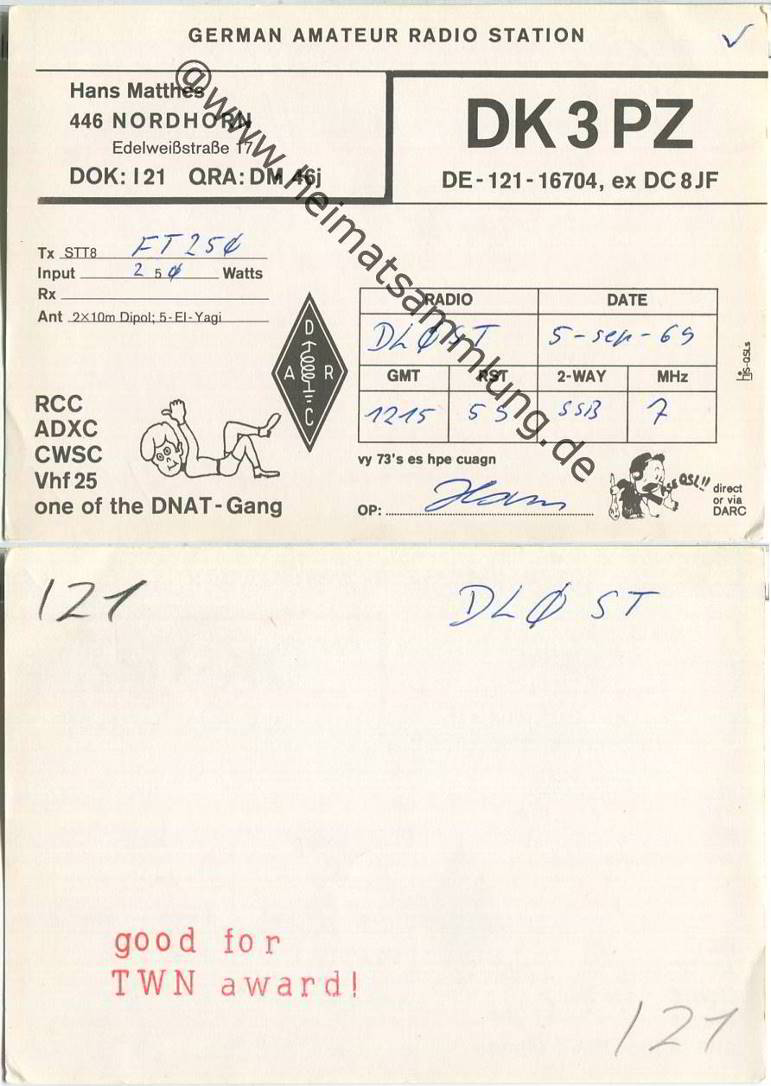 GERMAN AMATEUR RADIO STATION
Hans Matthes
446 NORDHORN
Edelweißstraße 17
DOK: I 21 QRA: DM 46j
DK 3 PZ
DE - 121 - 16704, ex DC 8 JF
Tx STT8 FT 25Ø
Input 2 5 Ø Watts
Rx
Ant 2×10m Dipol; 5-El-Yagi
D
A R
C
RADIO DATE
DLØST 5-sep-69
GMT RST 2-WAY MHz
1215 59 SSB 7
his-QSLs
RCC
ADXC
CWSC
Vhf 25
one of the DNAT-Gang
vy 73's es hpe cuagn
OP: Hans
QSL!!
direct
or via
DARC
@www.heimatsammlung.de
121
DLØST
good for
TWN award!
121